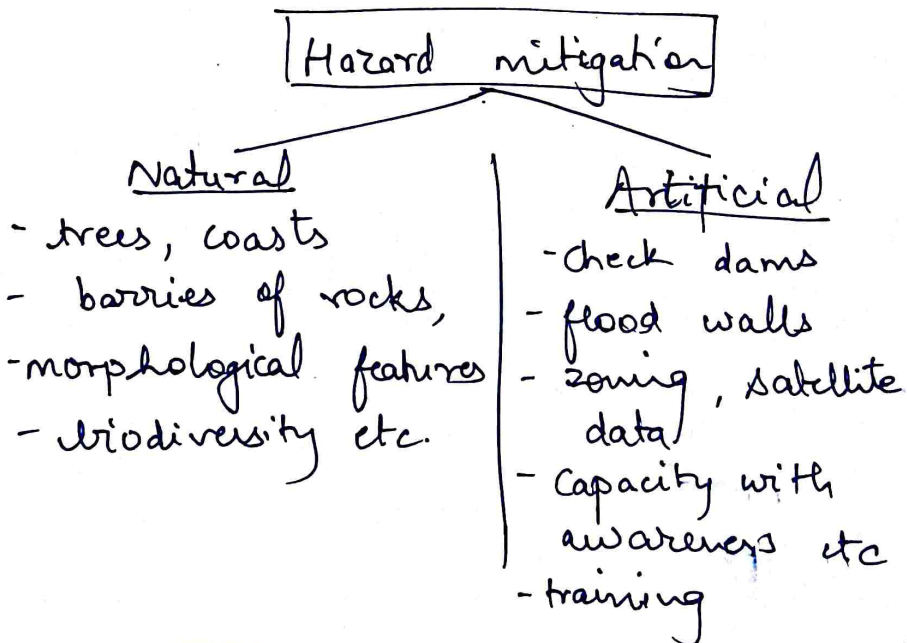 Hazard mitigation
Natural
- trees, coasts
- barries of rocks,
- morphological features
- biodiversity etc.
Artificial
- check dams
- flood walls
- zoning, satellite
data
- capacity with
awareness etc
- training